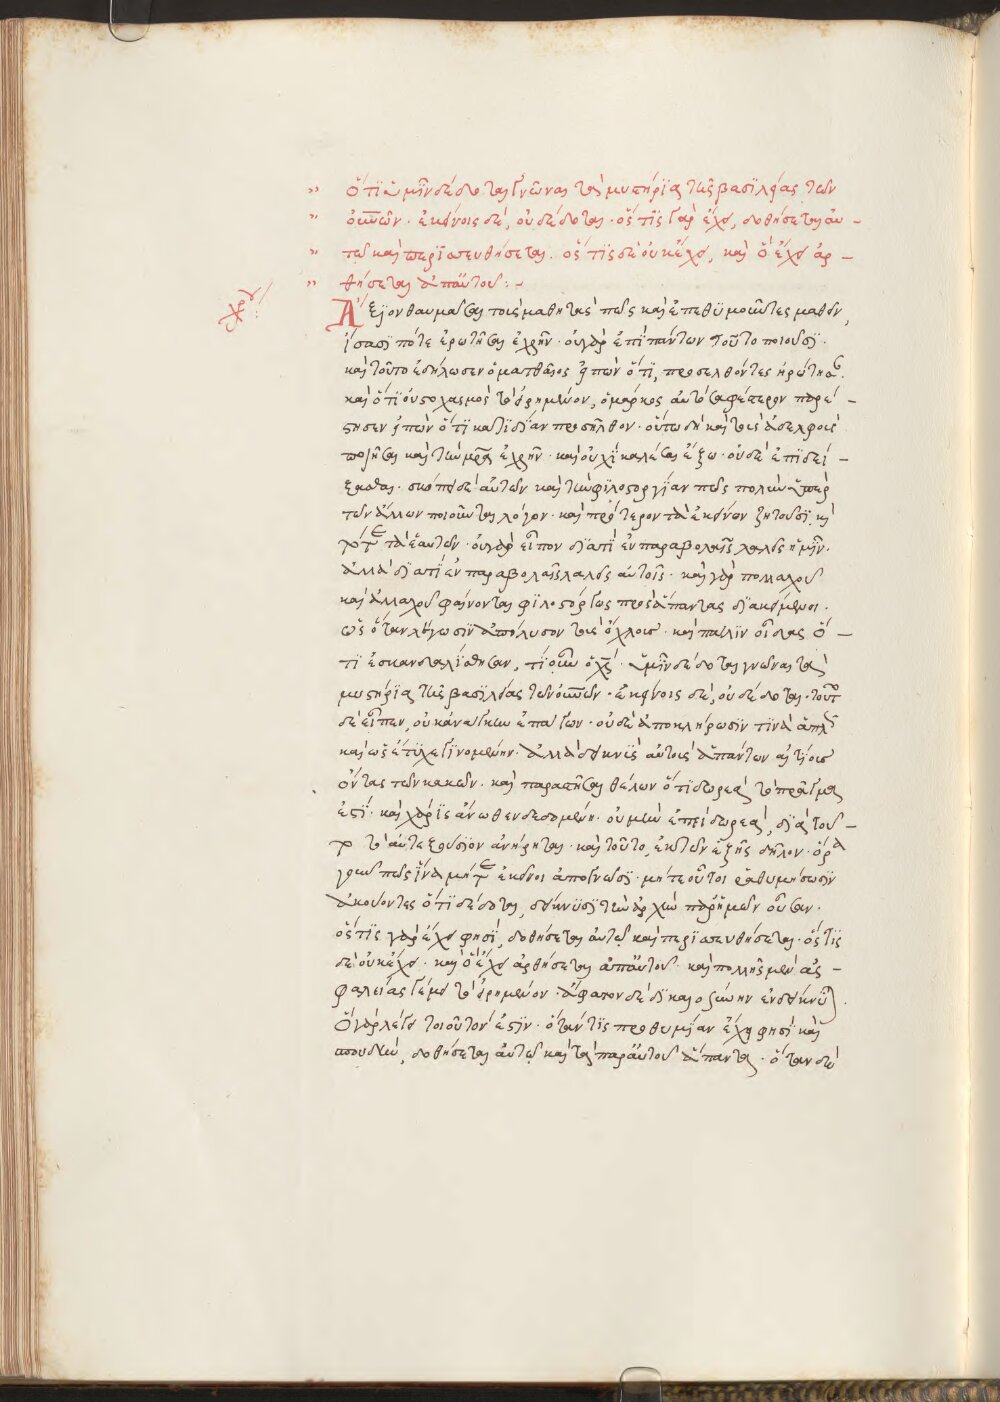 ὅτι ὑμῖν δέδοται γνῶναι τὰ μυστήρια τῆς βασιλείας τῶν
οὐνῶν· ἐκείνοις δέ, οὐ δέδοται· ὅστις γὰρ ἔχει, δοθήσεται αὐ-
τῷ καὶ περισσευθήσεται. ὅστις δὲ οὐκ ἔχει, καὶ ὃ ἔχει ἀρ-
θήσεται ἀπ' αὐτοῦ:-
Ἄξιον θαυμάσαι τοὺς μαθητὰς πῶς καὶ ἐπιθυμοῦντες μαθεῖν,
ἴσασι πότε ἐρωτῆσαι ἐχρῆν· οὐ γὰρ ἐπὶ πάντων τοῦτο ποιοῦσι·
καὶ τοῦτο ἐδήλωσεν ὁ ματθαῖος εἰπὼν ὅτι, προσελθόντες ἠρώτησαν·
καὶ ὅτι οὐ στοχασμὸς τὸ εἰρημένον, ὁ μάρκος αὐτὸ σαφέστερον παρέ-
στησεν εἰπὼν ὅτι κατιδίαν προσῆλθον· οὕτω δὴ καὶ τοὺς ἀδελφοὺς
ποιῆσαι καὶ τὴν μρα ἐχρῆν· καὶ οὐχὶ καλέσαι ἔξω· οὐδὲ ἐπιδεί-
ξασθαι· σκόπει δὲ αὐτῶν καὶ τὴν φιλοστοργίαν πῶς πολὺν ὑπὲρ
τῶν ἄλλων ποιοῦνται λόγον· καὶ πρότερον τὰ ἐκείνων ζητοῦσι, καὶ
τότε τὰ ἑαυτῶν· οὐ γὰρ εἶπον διατί ἐν παραβολαῖς λαλεῖς ἡμῖν·
ἀλλὰ διατί ἐν παραβολαῖς λαλεῖς αὐτοῖς· καὶ γὰρ πολλαχοῦ
καὶ ἀλλαχοῦ φαίνονται φιλοστόργως πρὸς ἅπαντας διακείμενοι·
ὡς ὅταν λέγωσιν ἀπόλυσον τοὺς ὄχλους· καὶ πάλιν οἶδας ὅ-
τι ἐσκανδαλίσθησαν, τί οὖν ὁ χς· ὑμῖν δέδοται γνῶναι τὰ
μυστήρια τῆς βασιλείας τῶν οὐνῶν· ἐκείνοις δέ, οὐ δέδοται· τοῦτο
δὲ εἶπεν, οὐκ ἀνάγκην ἐπάγων· οὐδὲ ἀποκλήρωσίν τινα ἁπλῶς
καὶ ὡς ἔτυχε γινομένην· ἀλλὰ δεικνὺς αὐτοὺς ἁπάντων αἰτίους
ὄντας τῶν κακῶν· καὶ παραστῆσαι θέλων ὅτι δωρεὰ τὸ πρᾶγμα
ἐστί· καὶ χάρις ἄνωθεν δεδομένη· οὐ μὴν ἐπειδὴ δωρεά, διὰ τοῦ-
το τὸ αὐτεξούσιον ἀνήρηται· καὶ τοῦτο, ἐκ τῶν ἑξῆς δῆλον· ὅρα
γοῦν πῶς ἵνα μήτε ἐκεῖνοι ἀπογνῶσι· μήτε οὗτοι ῥαθυμήσωσιν
ἀκούοντες ὅτι δέδοται, δείκνυσι τὴν ἀρχὴν παρ' ἡμῶν οὖσαν·
ὅστις γὰρ ἔχει φησί, δοθήσεται αὐτῷ καὶ περισσευθήσεται· ὅστις
δὲ οὐκ ἔχει· καὶ ὃ ἔχει ἀρθήσεται ἀπ' αὐτοῦ· καὶ πολλῆς μὲν ἀσ-
φαλείας γέμει τὸ εἰρημένον· ἄφατον δὲ δικαιοσύνην ἐνδείκνυται.
Ὃ γὰρ λέγει τοιοῦτόν ἐστιν· ὅταν τις προθυμίαν ἔχῃ φησὶ καὶ
σπουδὴν, δοθήσεται αὐτῷ καὶ τὰ παρ' αὐτοῦ ἅπαντα· ὅταν δὲ